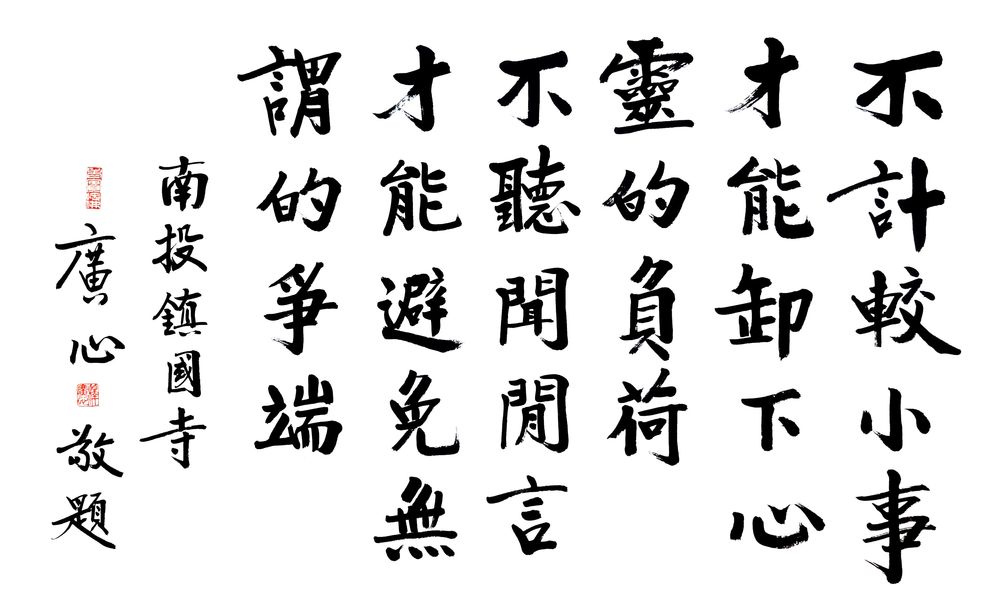 不計較小事
才能卸下心
靈的負荷
不聽聞閒言
才能避免無
謂的爭端
南投鎮國寺
廣心敬題